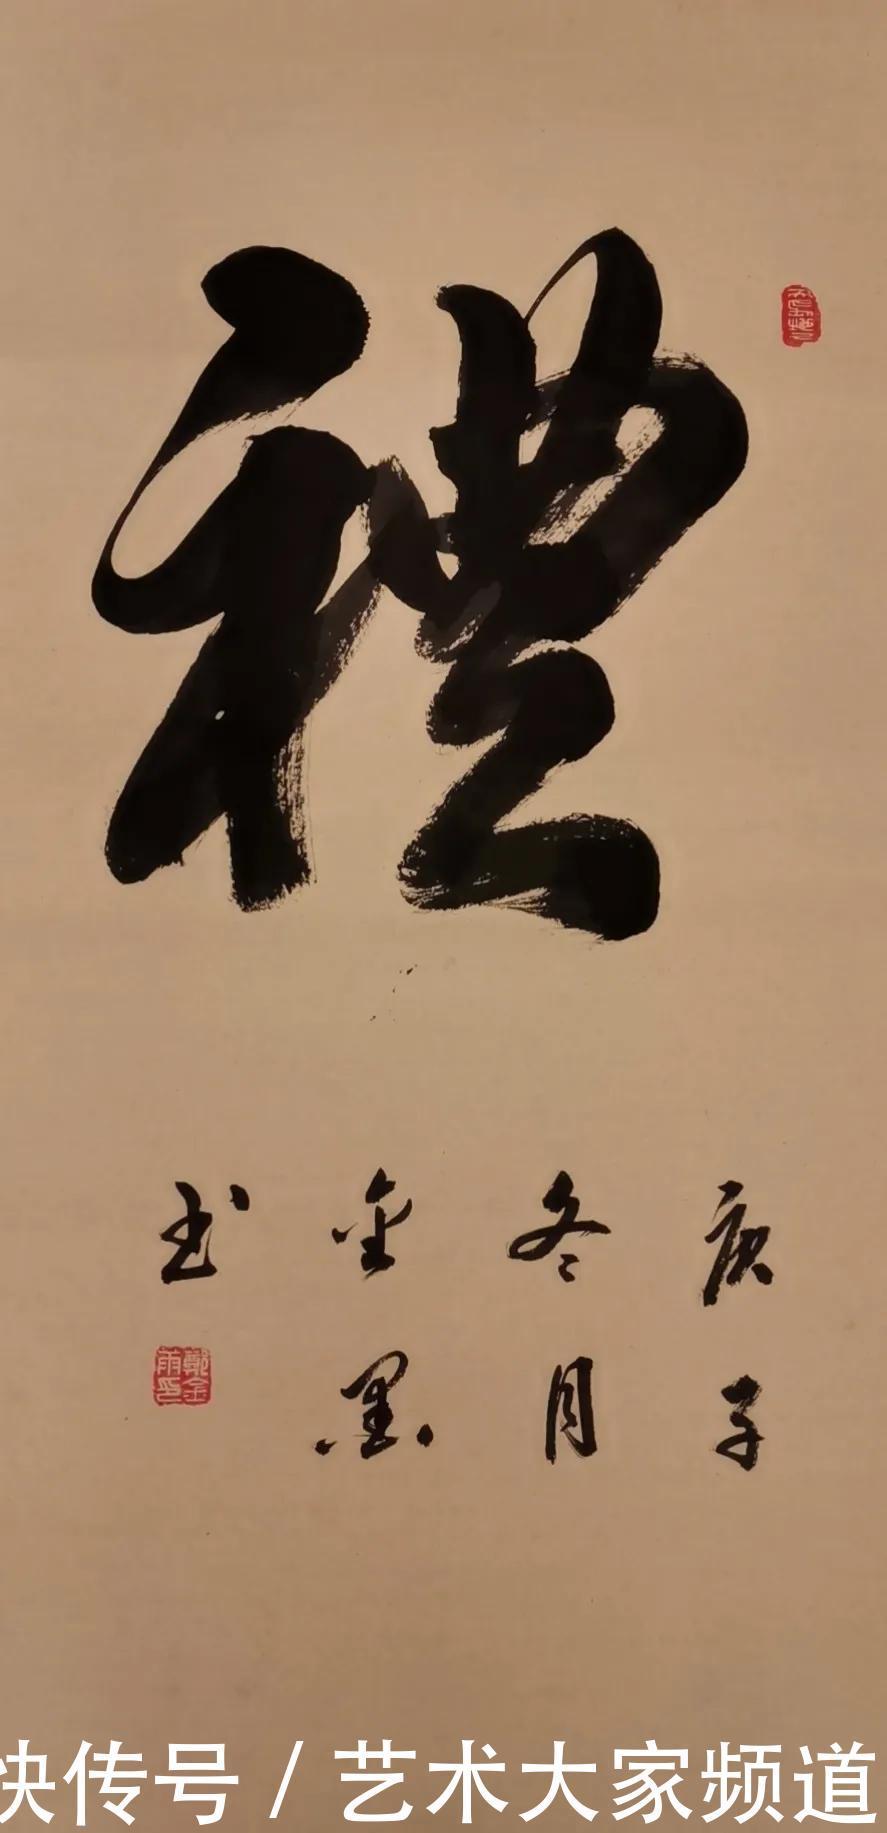 禮
庚子
冬月
金墨
书
鄭金雨印
快传号 / 艺术大家频道